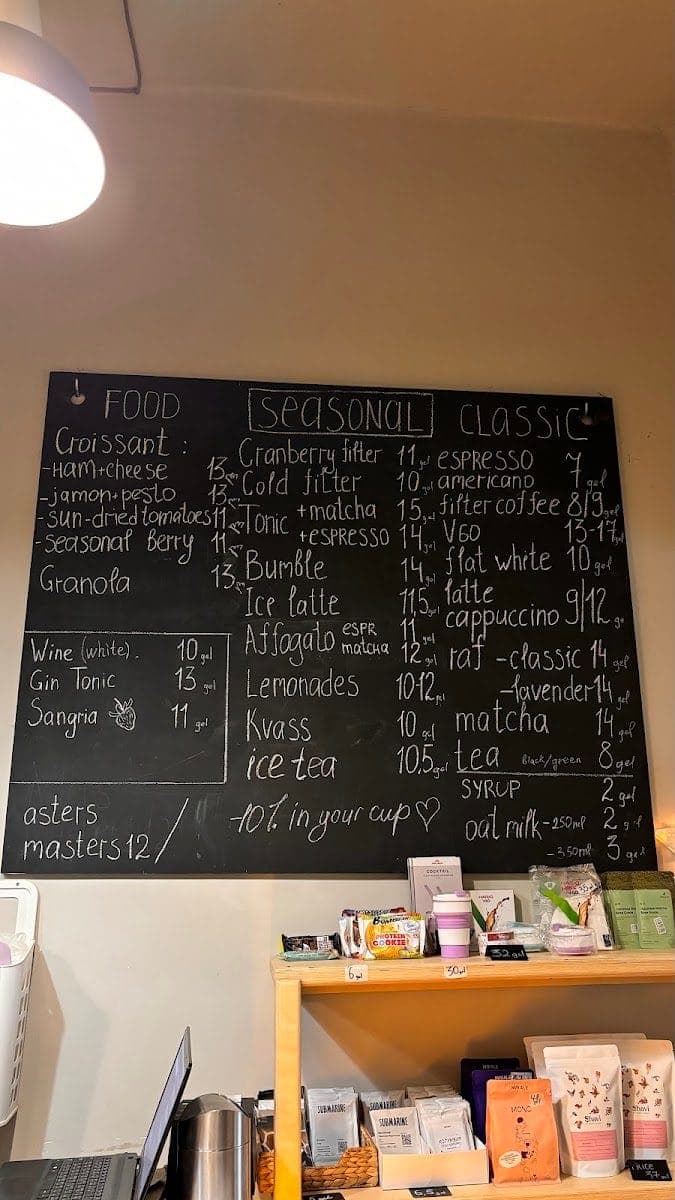 FOOD
Croissant :
-Ham+cheese 13
-jamon+pesto 13
-sun-dried tomatoes 11
-seasonal berry 11
Granola 13
Wine (white). 10 gel
Gin Tonic 13 gel
Sangria 11 gel
asters
masters 12/
SEASONAL
Cranberry filter 11 gel
Cold filter 10 gel
Tonic +matcha 15 gel
+espresso 14 gel
Bumble 14 gel
Ice latte 11,5 gel
Affogato espr 11 gel
matcha 12 gel
Lemonades 10-12 gel
Kvass 10 gel
ice tea 10,5 gel
-10% in your cup ♡
CLASSIC
ESPRESSO 7 gel
americano
filter coffee 8/9 gel
V60 13-17 gel
flat white 10 gel
latte
cappuccino 9/12 ge
raf -classic 14 gel
-lavender 14 gel
matcha 14 gel
tea Black/green 8 gel
SYRUP 2 gel
oat milk -250ml 2 gel
-350ml 3 gel
COCKTAIL
PROTEIN
COOKIE
6 gel
30 gel
32 gel
SUBMARINE
SUBMARINE
SUBMARINE
6,5 gel
MONO
Shavi
Shavi
37 gel